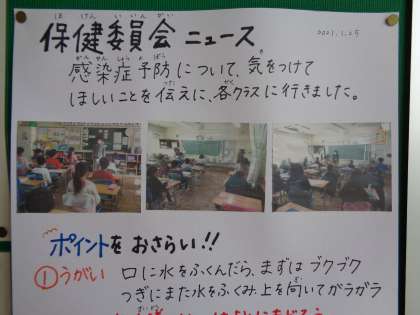 保健委員会 ニュース
2021.1.25
感染症予防について、気をつけて
ほしいことを伝えに、各クラスに行きました。
ポイントをおさらい!!
①うがい 口に水をふくんだら、まずは ブクブク
つぎにまた水をふくみ、上を向いてガラガラ